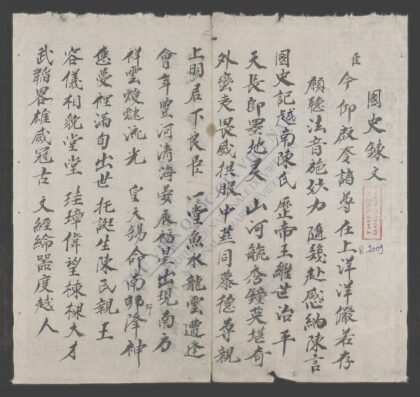 國史鍊文
臣今仰啟 諸尊在上洋洋儼若存
願聽法音施 力 隨幾赴感納陳言
國史記越南陳氏 歷帝王 世治平
天長即墨地灵 山河毓秀鐘英堪奇
外蠻夷畏威 服中華同慕德尊親
上明君下良臣 一堂魚水龍雲遭逢
會年豐河清海晏展福星出現南方
祥雲靉靆流光 皇天錫命南郡降神
應夢裡滿旬出世托誕生陳氏親王
容儀相貌堂堂 珪璋偉望棟樑大才
武韜畧雄威冠古 文經綸器度越人
R.2009